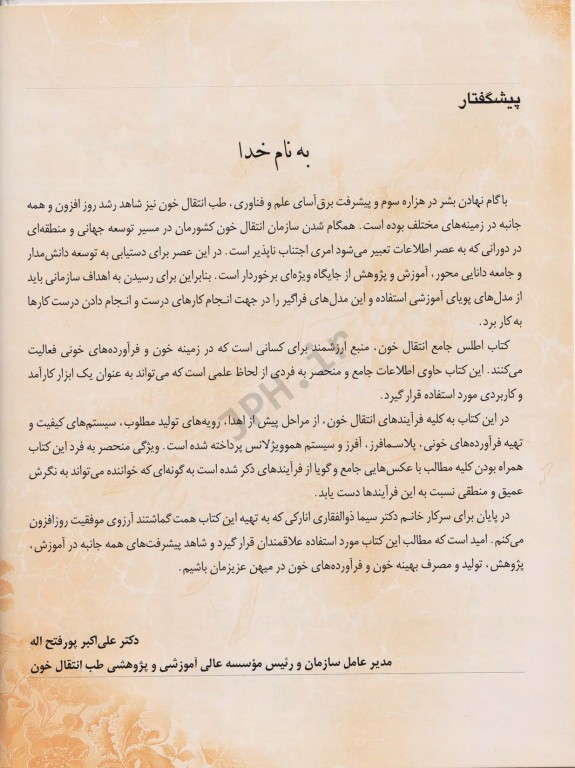 پیشگفتار
به نام خدا
با گام نهادن بشر در هزاره سوم و پیشرفت برق‌آسای علم و فناوری، طب انتقال خون نیز شاهد رشد روز افزون و همه
جانبه در زمینه‌های مختلف بوده است. همگام شدن سازمان انتقال خون کشورمان در مسیر توسعه جهانی و منطقه‌ای
در دورانی که به عصر اطلاعات تعبیر می‌شود امری اجتناب ناپذیر است. در این عصر برای دستیابی به توسعه دانش‌مدار
و جامعه دانایی محور، آموزش و پژوهش از جایگاه ویژه‌ای برخوردار است. بنابراین برای رسیدن به اهداف سازمانی باید
از مدل‌های پویای آموزشی استفاده و این مدل‌های فراگیر را در جهت انجام کارهای درست و انجام دادن درست کارها
به کار برد.
کتاب اطلس جامع انتقال خون، منبع ارزشمند برای کسانی است که در زمینه خون و فرآورده‌های خونی فعالیت
می‌کنند. این کتاب حاوی اطلاعات جامع و منحصر به فردی از لحاظ علمی است که می‌تواند به عنوان یک ابزار کارآمد
و کاربردی مورد استفاده قرار گیرد.
در این کتاب به کلیه فرآیندهای انتقال خون، از مراحل پیش از اهدا، رویه‌های تولید مطلوب، سیستم‌های کیفیت و
تهیه فرآورده‌های خونی، پلاسمافرز، آفرز و سیستم هموویژلانس پرداخته شده است. ویژگی منحصر به فرد این کتاب
همراه بودن کلیه مطالب با عکس‌هایی جامع و گویا از فرآیندهای ذکر شده است به گونه‌ای که خواننده می‌تواند به نگرش
عمیق و منطقی نسبت به این فرآیندها دست یابد.
در پایان برای سرکار خانم دکتر سیما ذوالفقاری انارکی که به تهیه این کتاب همت گماشتند آرزوی موفقیت روزافزون
می‌کنم. امید است که مطالب این کتاب مورد استفاده علاقمندان قرار گیرد و شاهد پیشرفت‌های همه جانبه در آموزش،
پژوهش، تولید و مصرف بهینه خون و فرآورده‌های خون در میهن عزیزمان باشیم.
دکتر علی‌اکبر پورفتح اله
مدیر عامل سازمان و رئیس مؤسسه عالی آموزشی و پژوهشی طب انتقال خون
JPH.ir